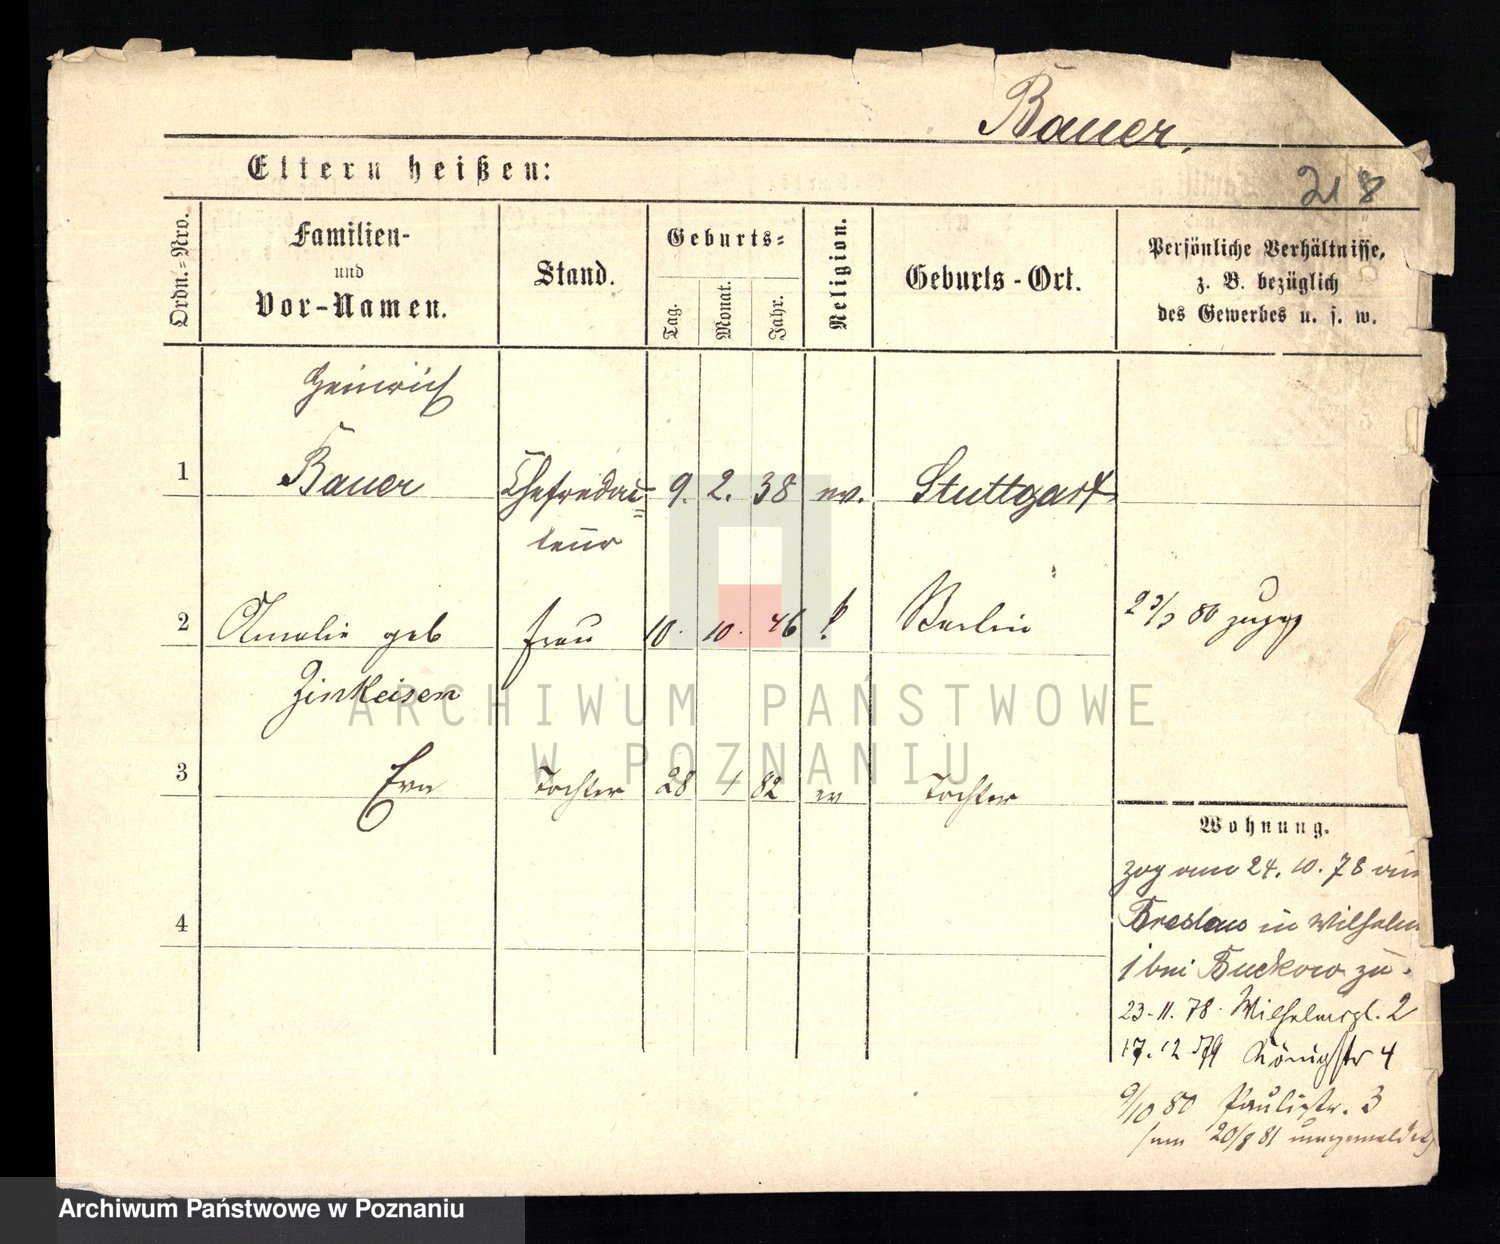 Bauer,
Eltern heißen:
218
Ordn.-Nro.
Familien-
und
Vor-Namen.
Stand.
Geburts-
Tag.
Monat.
Jahr.
Religion.
Geburts-Ort.
Persönliche Verhältnisse,
z. B. bezüglich
des Gewerbes u. s. w.
Heinrich
1 Bauer Chefredac- 9. 2. 38 ev. Stuttgart
teur
2 Amalie geb Frau 10. 10. 46 Berlin 80 zugzg
Zinkeisen
3 Eva Tochter 28 82 ev Tochter
4
Wohnung.
zog am 24. 10. 78 aus
Breslau in Wilhelm
1 bei Buckow zu.
23.11.78. Wilhelmspl. 2
17.12 79 Königstr 4
9/10 80 Paulistr. 3
20/8 81 umgemeldet
ARCHIWUM PAŃSTWOWE
W POZNANIU
Archiwum Państwowe w Poznaniu